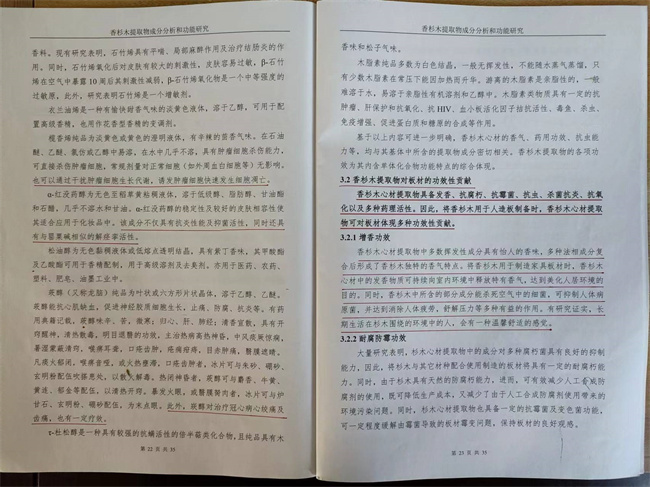 香杉木提取物成分分析和功能研究
香料。现有研究表明，石竹烯具有平喘、局部麻醉作用及治疗结肠炎的作
用。同时，石竹烯氧化后对皮肤有较大的刺激性，皮肤容易过敏，β-石竹
烯在空气中暴露 10 周后其刺激性减弱，β-石竹烯氧化物是一个中等强度的
过敏原，此外，研究表明石竹烯是一个增敏剂。
衣兰油烯是一种有愉快甜香气味的淡黄色液体，溶于乙醇，可用于配
置高级香精，也用作花香型香精的变调剂。
榄香烯纯品为淡黄色或黄色的澄明液体，有辛辣的茴香气味。在石油
醚、乙醚、氯仿或乙醇中易溶，在水中几乎不溶，具有肿瘤细胞杀伤能力，
可直接杀伤肿瘤细胞，常规剂量对正常细胞（如外周血白细胞等）无影响，
也可以通过干扰肿瘤细胞生长代谢，诱发肿瘤细胞快速发生细胞凋亡。
α-红没药醇为无色至稻草黄粘稠液体，溶于低级醇、脂肪醇、甘油酯
和石蜡，几乎不溶水和甘油。α-红没药醇的稳定性及较好的皮肤相容性使
其适合应用于化妆品中。该成分不仅具有抗炎性能及抑菌活性，同时还具
有与罂粟碱相似的解痉挛活性。
松油醇为无色黏稠液体或低熔点透明结晶。具有紫丁香味，其甲酸酯
及乙酸酯可用于香精配制，用于高级溶剂及去臭剂。亦用于医药、农药、
塑料、肥皂、油墨工业中。
莰醇（又称龙脑）纯品为叶状或六方形片状晶体，溶于乙醇、乙醚。
莰醇能抗心肌缺血，促进神经胶质细胞生长，止痛、防腐、抗炎等。有药
用典籍记载，莰醇味辛、苦，微寒；归心、肝、肺经；清香宣散，具有开
窍醒神，清热散毒，明目退翳的功效，主治热病高热神昏，中风痰厥惊痫，
暑湿蒙蔽清窍，喉痹耳聋，口疮齿肿，疮痈疳痔，目赤肿痛，翳膜遮睛，
凡痰火郁闭，喉痹舌疳，或火热壅滞，口疮齿肿者，冰片可与朱砂、硼砂、
玄明粉配伍吹搽患处，以散火解毒。热闭神昏者，莰醇可与麝香、牛黄、
黄连、郁金等配伍，以清热开窍。暴发火眼，或翳膜努肉者，冰片可与炉
甘石、玄明粉、硼砂配伍，为末点眼。此外，莰醇对治疗冠心病心绞痛及
齿痛，也有一定疗效。
τ-杜松醇是一种具有较强的抗螨活性的倍半萜类化合物，且纯品具有木
第 22 页 共 35
香杉木提取物成分分析和功能研究
香味和松子气味。
木脂素纯品多数为白色结晶，一般无挥发性，不能随水蒸气蒸馏，只
有少数木脂素在常压下能因加热而升华。游离的木脂素是亲脂性的，一般
难溶于水，易溶于亲脂性有机溶剂和乙醇中。木脂素类物质具有一定的抗
肿瘤、肝保护和抗氧化、抗 HIV、血小板活化因子拮抗活性、毒鱼、杀虫、
免疫增强、促进蛋白质和糖原的合成等作用。
基于以上内容可进一步明确，香杉木心材的香气、药用功效、抗虫能
力等，均与其基体中所含的提取物成分密切相关。香杉木提取物的各项功
效为其内含单体化合物功能特点的综合体现。
3.2 香杉木提取物对板材的功效性贡献
香杉木心材提取物具备发香、抗腐朽、抗霉菌、抗虫、杀菌抗炎、抗氧
化以及多种药理活性。因此，将香杉木用于人造板制备时，香杉木心材提取
物可对板材体现多种功效性贡献。
3.2.1 增香功效
香杉木心材提取物中多数挥发性成分具有怡人的香味，多种活相成分复
合后形成了香杉木独特的香气特点。将香杉木用于制造家具板材时，香杉木
心材中的发香物质可持续向室内环境中释放特有香气，达到美化人居环境的
目的。同时，香杉木中所含的部分成分能杀死空气中的细菌，可抑制人体病
原菌，并达到消除人体疲劳，舒解压力等多种有益的作用。有研究证实，长
期生活在杉木围绕的环境中的人，会有一种温馨舒适的感觉。
3.2.2 耐腐防霉功效
大量研究表明，杉木心材提取物中的成分对多种腐朽菌具有良好的抑制
能力，因此，将杉木与其它树种配合使用制造的板材将具有一定的耐腐朽能
力。同时，由于杉木具有天然的防腐朽能力，进而，可有效减少人工合成防
腐剂的使用，既可降低生产成本，又减少了由于人工合成防腐剂使用带来的
环境污染问题。同时，杉木心材提取物也具备一定的抗霉菌及变色菌功能，
可一定程度缓解由霉菌导致的板材霉变问题，保持板材的良好观感。
第 23 页 共 35